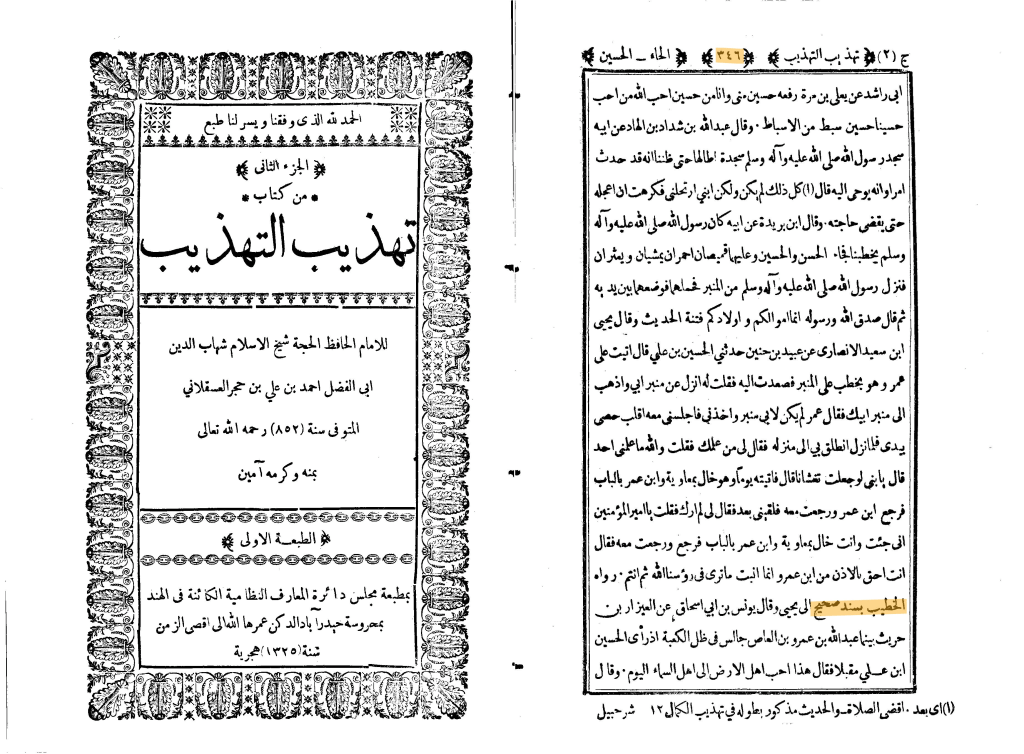 ج (٢) تهذيب التهذيب ٣٤٦ الحاء ـ الحسين
ابى راشد عن يعلى بن مرة رفعه حسين منى وانا من حسين احب الله من احب
حسينا حسين سبط من الاسباط ٠ وقال عبدالله بن شداد بن الهاد عن ابيه
سجد رسول الله صلى الله عليه وآله وسلم سجدة اطالها حتى ظننا انه قد حدث
امر او انه يوحى اليه قال (١) كل ذلك لم يكن ولكن ابني ارتحلنى فكرهت ان اعجله
حتى يقضى حاجته ٠ وقال ابن بريدة عن ابيه كان رسول الله صلى الله عليه وآله
وسلم يخطبنا فجاء الحسن والحسين وعليهما قميصان احمران يمشيان ويعثران
فنزل رسول الله صلى الله عليه وآله وسلم من المنبر فحملهما فوضعهما بين يديه
ثم قال صدق الله ورسوله انما اموالكم واولادكم فتنة الحديث وقال يحيى
ابن سعيد الانصارى عن عبيد بن حنين حدثني الحسين بن علي قال اتيت على
عمر وهو يخطب على المنبر فصعدت اليه فقلت له انزل عن منبر ابي واذهب
الى منبر ابيك فقال عمر لم يكن لابى منبر واخذنى فاجلسنى معه اقلب حصى
بيدى فلما نزل انطلق بي الى منزله فقال لى من علمك فقلت والله ما علمنى احد
قال يا بنى لو جعلت تغشانا قال فاتيته يوما وهو خال بمعاوية وابن عمر بالباب
فرجع ابن عمر ورجعت معه فلقينى بعد فقال لى لم ارك فقلت يا امير المؤمنين
انى جئت وانت خال بمعاوية وابن عمر بالباب فرجع ورجعت معه فقال
انت احق بالاذن من ابن عمر وانما انبت ماترى فى رؤسنا الله ثم انتم ٠ رواه
الخطيب بسند صحيح الى يحيى وقال يونس بن ابى اسحاق عن العيزار بن
حريث بينما عبدالله بن عمرو بن العاص جالس فى ظل الكعبة اذ رأى الحسين
ابن علي مقبلا فقال هذا احب اهل الارض الى اهل السماء اليوم ٠ وقال
(١) اى بعد ٠ اقضى الصلاة ـ والحديث مذكور بطوله فى تهذيب الكمال ١٢ شرحبيل
الحمد لله الذى وفقنا ويسر لنا طبع
الجزء الثانى
من كتاب
تهذيب التهذيب
للامام الحافظ الحجة شيخ الاسلام شهاب الدين
ابى الفضل احمد بن علي بن حجر العسقلاني
المتوفى سنة (٨٥٢) رحمه الله تعالى
بمنه وكرمه آمين
الطبعة الاولى
بمطبعة مجلس دائرة المعارف النظامية الكائنة فى الهند
بمحروسة حيدرآباد الدكن عمرها الله الى اقصى الزمن
سنة (١٣٢٥) هجرية